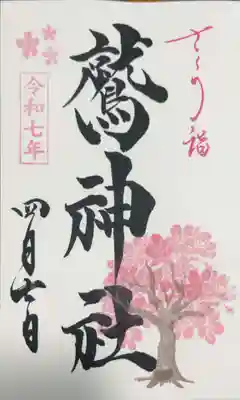 さくら詣
鷲神社
令和七年
四月七日